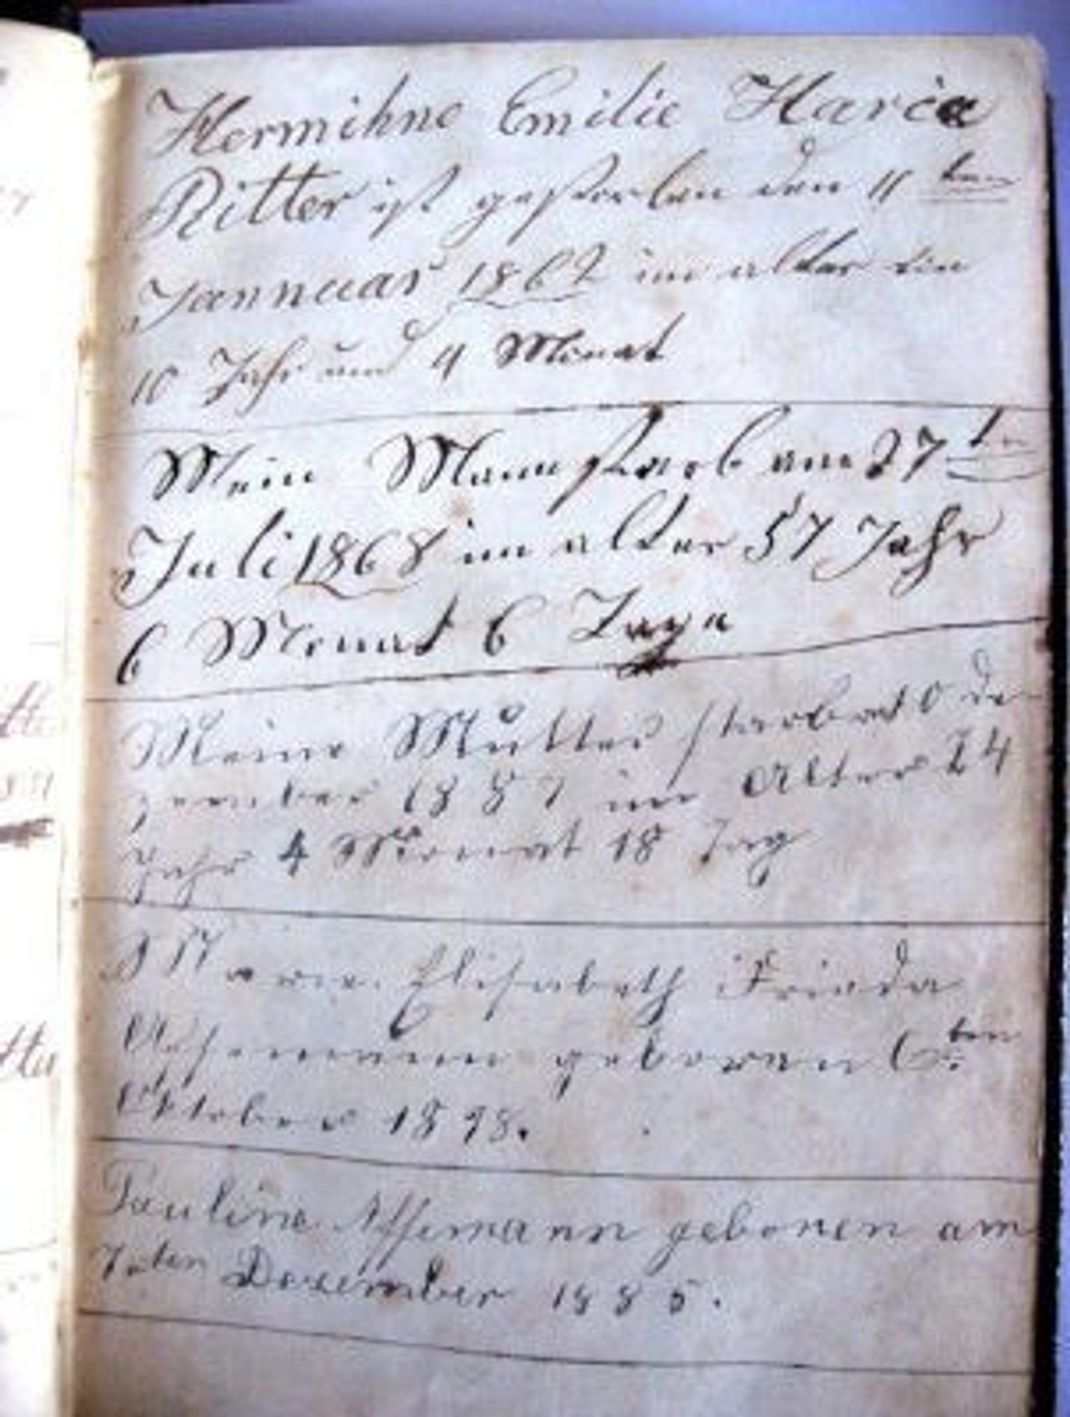 Hermihne Emilie Maria
Ritter ist gestorben den 11 ten
Jannuar 1862 im alter ein
10 Jahr und 4 Monat
Mein Mann starb am 27 ten
Juli 1868 im alter 57 Jahr
6 Monat 6 Tage
Meine Mutter starb at 0 de
zember 1887 im Alter
Jahr 4 Monat 18 Tag
Marie Elisabeth Frieda
Assemann geboren 6ten
Oktober 1878.
Pauline Assemann geboren am
7ten Dezember 1885.